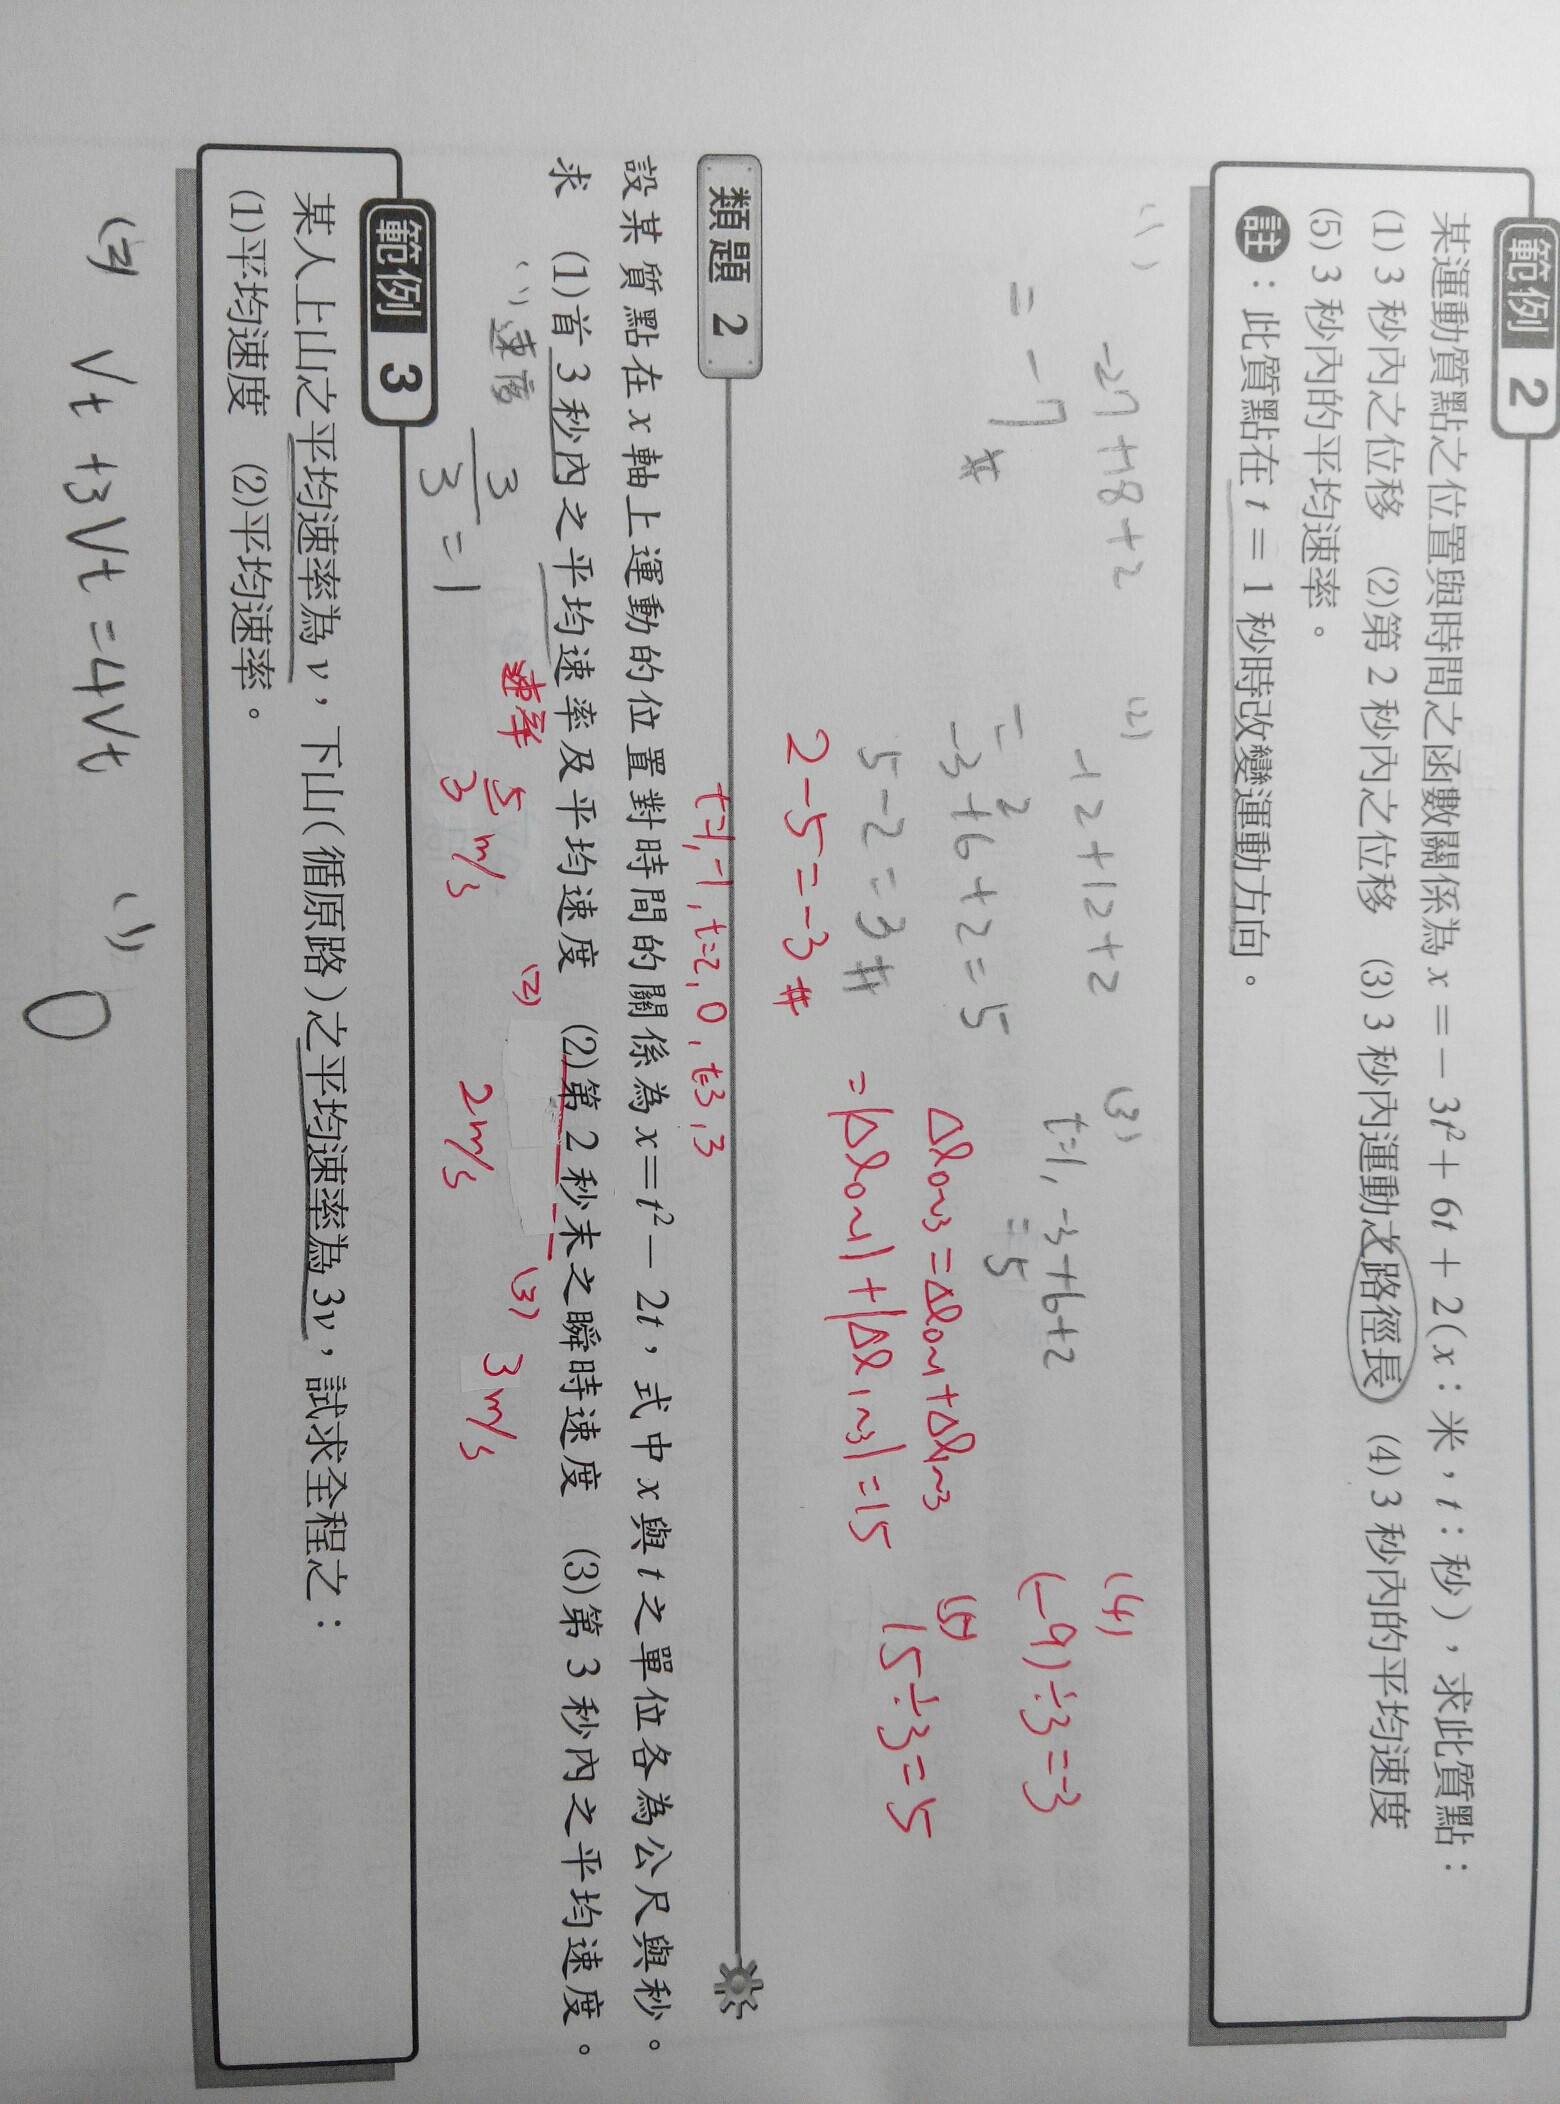 範例 2
某運動質點之位置與時間之函數關係為 x = − 3t² + 6t + 2( x : 米，t : 秒 )，求此質點：
(1) 3 秒內之位移 (2)第 2 秒內之位移 (3) 3 秒內運動之路徑長 (4) 3 秒內的平均速度
(5) 3 秒內的平均速率。
註：此質點在 t = 1 秒時改變運動方向。
(1)
-27+18+2
= -7 #
(2)
-12+12+2
= 2
-3+6+2=5
5-2=3 #
2-5=-3 #
(3)
t=1, -3+6+2
=5
Δl0~3=Δl0~1+Δl1~3
=|Δl0~1|+|Δl1~3|=15
(4)
(-9)÷3=-3
(5)
15÷3=5
類題 2
t=1,-1,t=2,0,t=3,3
設某質點在 x 軸上運動的位置對時間的關係為 x = t² − 2t，式中 x 與 t 之單位各為公尺與秒。
求 (1)首 3 秒內之平均速率及平均速度 (2)第 2 秒末之瞬時速度 (3)第 3 秒內之平均速度。
(1) 速度 3/3 = 1
速率 5/3 m/s
(2) 2m/s
(3) 3m/s
範例 3
某人上山之平均速率為 v，下山( 循原路 )之平均速率為 3v，試求全程之：
(1)平均速度 (2)平均速率。
(2) Vt+3Vt=4Vt
(1) 0